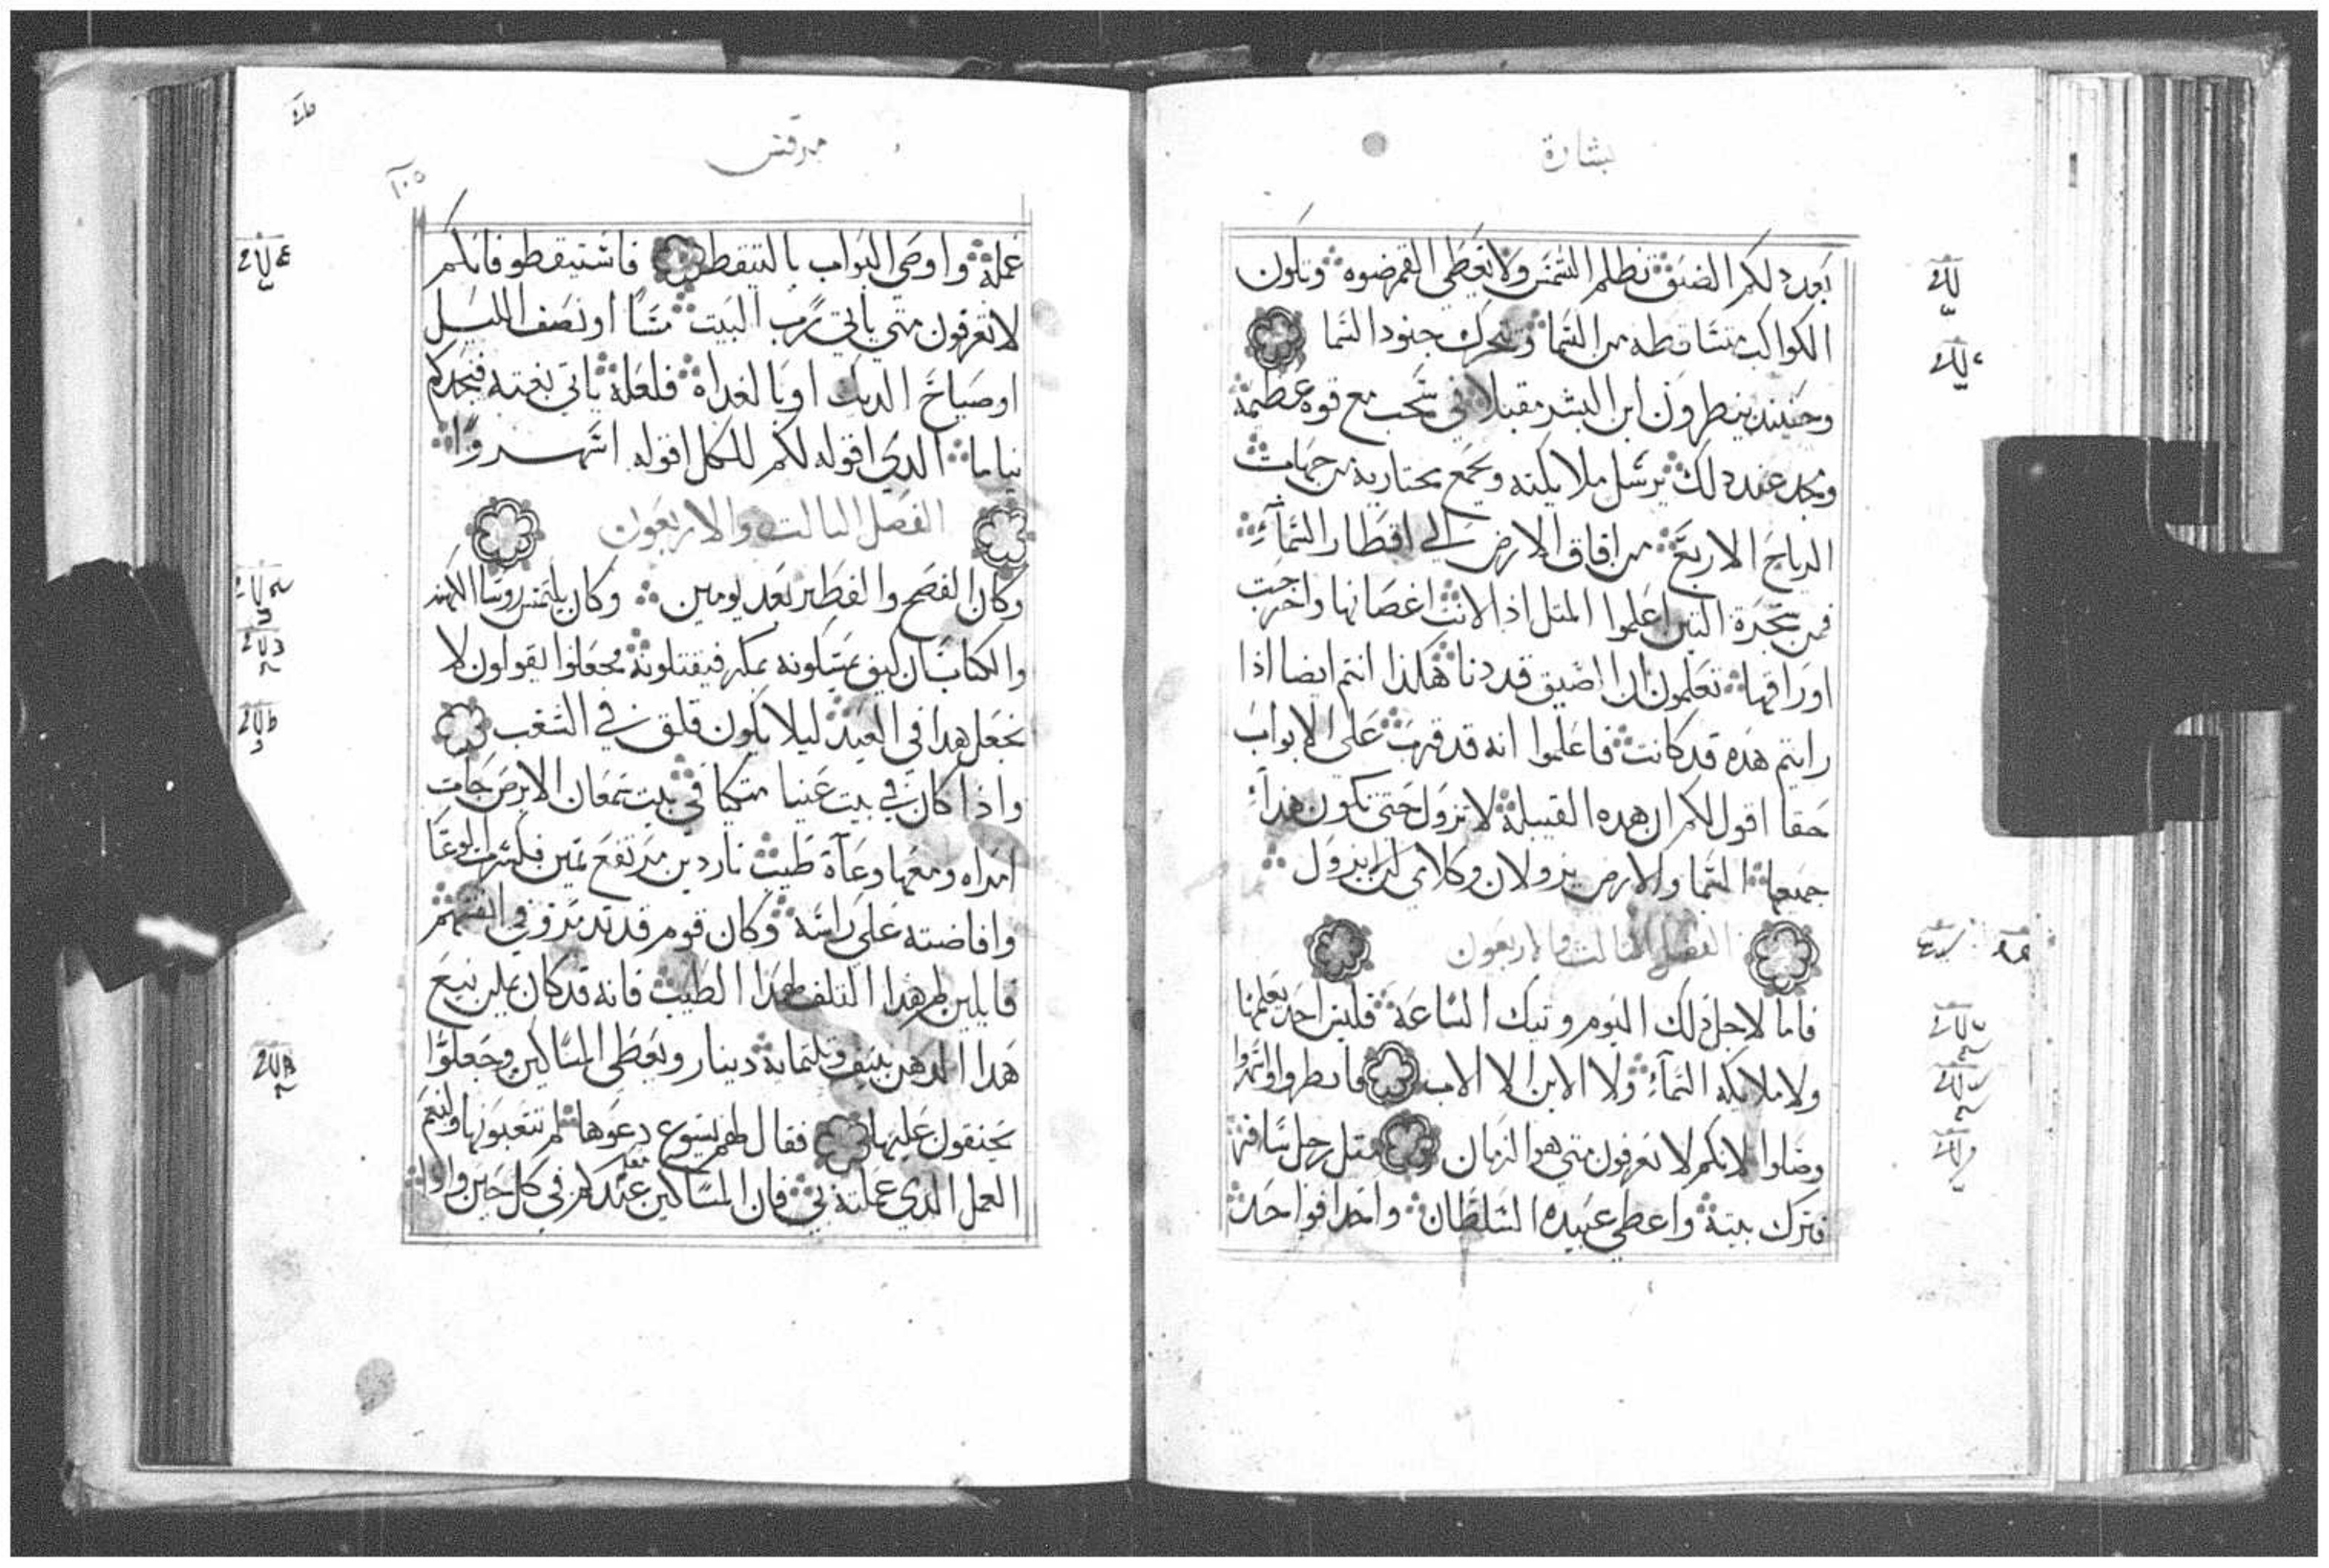 بشارة
بعد دلكم الضيق تطلم الشمس ولا تعطي القمر ضوه وتكون
الكواكب متساقطه من السما وتتحرك جنود السما
وحينيد ينطرون ابن البشر مقبلا في سحب مع قوه عطيمة
ومجد عند دلك يرسل ملايكته ويجمع مختاريه من جهات
الرياح الاربع من افاق الارض الي اقطار السماء
فمن شجرة التين اعلموا المتل اذا لانت اغصانها واخرجت
اوراقها تعلمون ان الصيق قد دنا هكذا انتم ايضا اذا
رايتم هده قد كانت فاعلموا انه قد قرب على الابواب
حقا اقول لكم ان هده القبيلة لا تزول حتى تكون هذا
جميعها السما والارض يزولان وكلامي لن يزول
الفصل التالت والاربعون
فاما لاجل ذلك اليوم وتيك الساعة فليس احد يعلمها
ولا ملايكه السماء ولا الابن الا الاب فانطروا واسهروا
وصلوا لانكم لا تعرفون متي هو الزمان متل رجل سافر
فترك بيته واعطي عبيده السلطان واحدا فواحد
مرقس
١٠٥
عمله واوصي البواب بالتيقط فاستيقطو فانكم
لا تعرفون متي ياتي رب البيت مسا او نصف الليل
او صياح الديك او بالغداه فلعله ياتي بغته فيجدكم
نياما الدي اقوله لكم للكل اقوله اسهروا
الفصل التالت والاربعون
وكان الفصح والفطير بعد يومين وكان يلتمس روسا الكهنه
والكتاب ان كيف يمسكونه بمكر فيقتلونه فجعلوا يقولون لا
نجعل هدا في العيد ليلا يكون قلق في الشعب
واذا كان في بيت عنيا متكيا في بيت سمعان الابرص جات
امراه ومعها وعآة طيب ناردين مرتفع تمين فكسرت الوعا
وافاضته علي راسه وكان قوم قد تدمرو في انفسهم
قايلين لم هدا التلف لهذا الطيب فانه قد كان يمكن نبيع
هدا الدهن بنيف وتلتماية دينار ويعطى المساكين وجعلوا
يحنقون عليها فقال لهم يسوع دعوها لم تتعبونها ولنعم
العمل الدي عملته بي فان المساكين عندكم في كل حين واذا